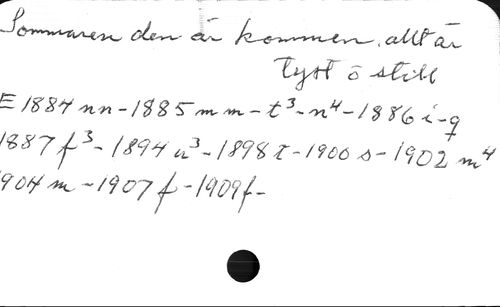 Sommaren den är kommen, allt är
tyst o still
E 1884 nn - 1885 m m - t³ - n⁴ - 1886 i - q
1887 f³ - 1894 u³ - 1898 t - 1900 s - 1902 m⁴
1904 m - 1907 f - 1909 f -